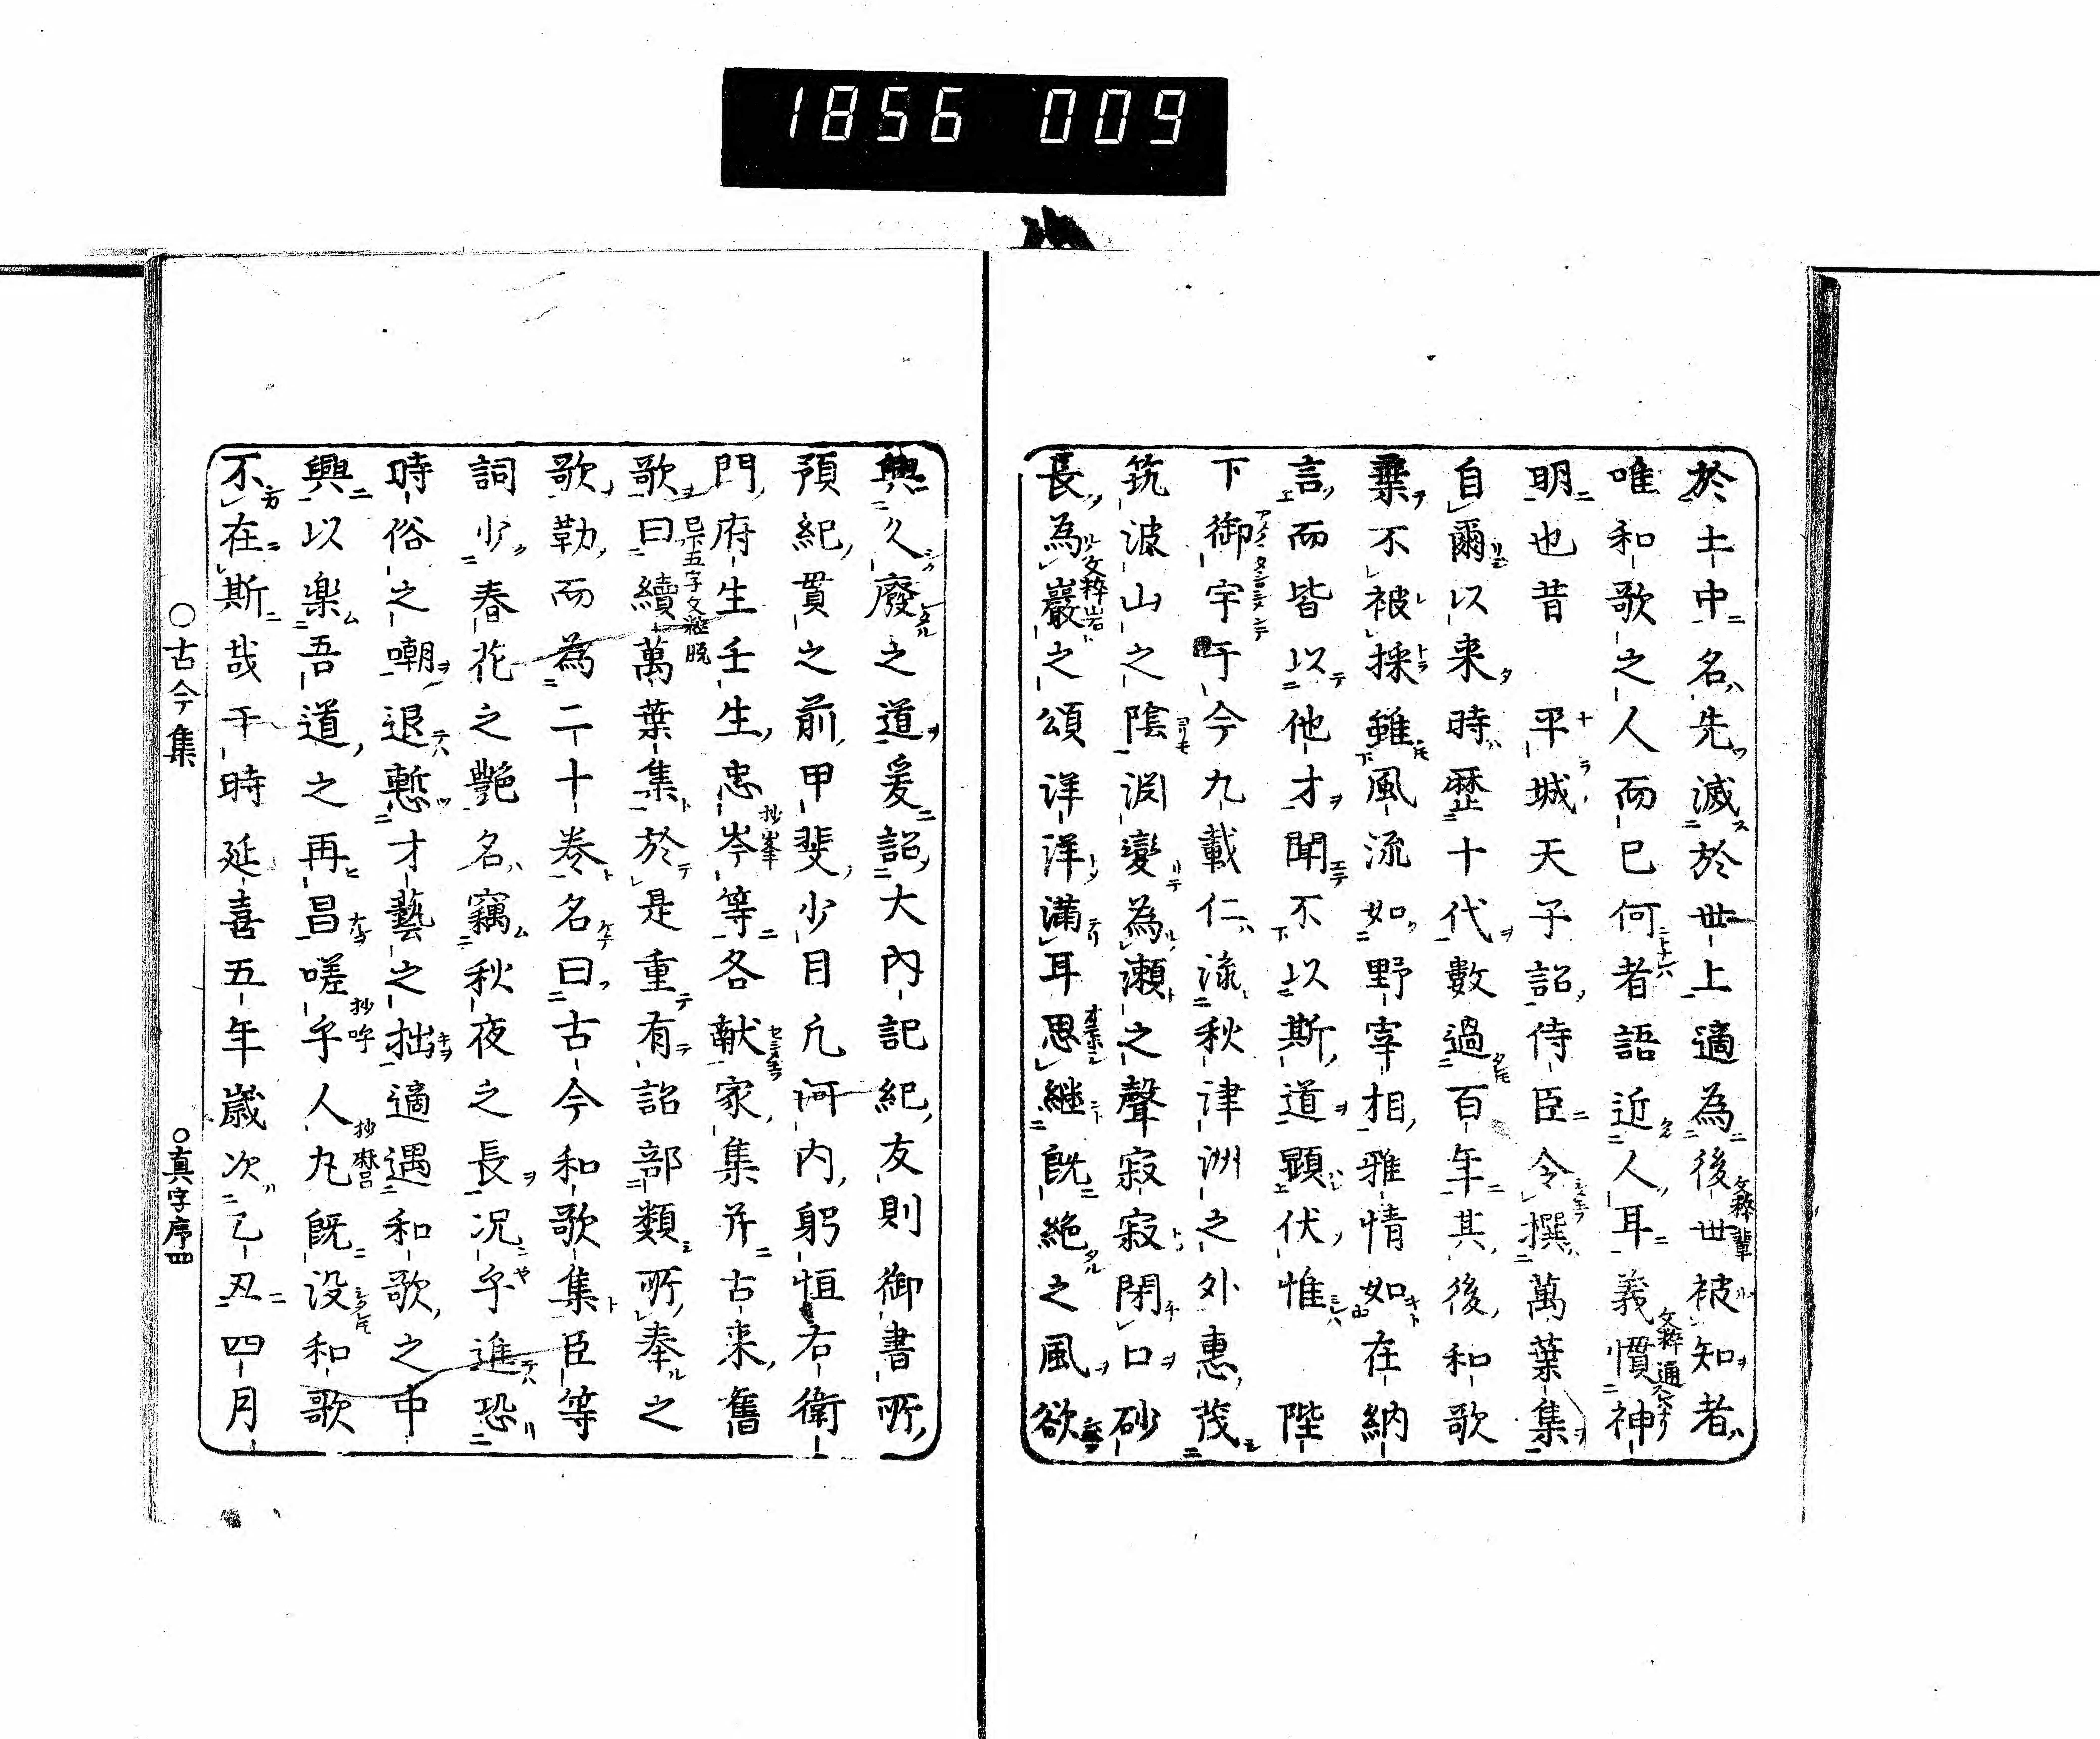 1856 009
於土中名先滅於世上適為後世被知者
唯和歌之人而已何者語近人耳義慣神
明也昔 平城天子詔侍臣令撰萬葉集
自爾以来時歴十代數過百年其後和歌
棄不被採雖風流如野宰相雅情如在納
言而皆以他才聞不以斯道顕伏惟 陛
下御宇于今九載仁流秋津洲之外惠茂
筑波山之陰淵變為瀬之聲寂寂閇口砂
長為巖之頌洋洋滿耳思継既絶之風欲
興久廢之道爰詔大内記紀友則御書所
預紀貫之前甲斐少目凢河内躬恒右衛
門府生壬生忠岑等各献家集并古来舊
歌曰續萬葉集於是重有詔部類所奉之
歌勒而為二十巻名曰古今和歌集臣等
詞少春花之艶名竊秋夜之長况乎進恐
時俗之嘲退慙才藝之拙適遇和歌之中
興以楽吾道之再昌嗟乎人丸既没和歌
不在斯哉于時延喜五年歳次乙丑四月
○古今集 ○真字序四